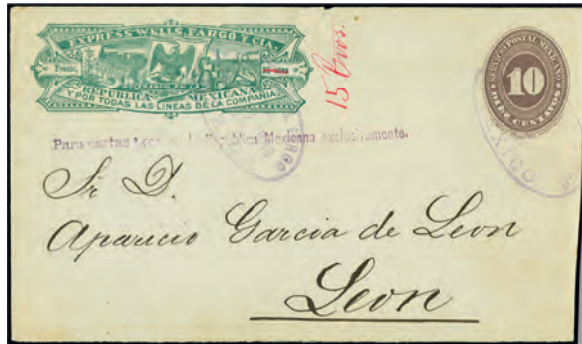 EXPRESS WELLS, FARGO Y CIA.
REPUBLICA MEXICANA
Y POR TODAS LAS LINEAS DE LA COMPAÑIA
15 Cvos.
SERVICIO POSTAL MEXICANO
10
DIEZ CENTAVOS
Para cartas en la Republica Mexicana exclusivamente.
MEXICO
Sr D.
Aparicio Garcia de Leon
Leon